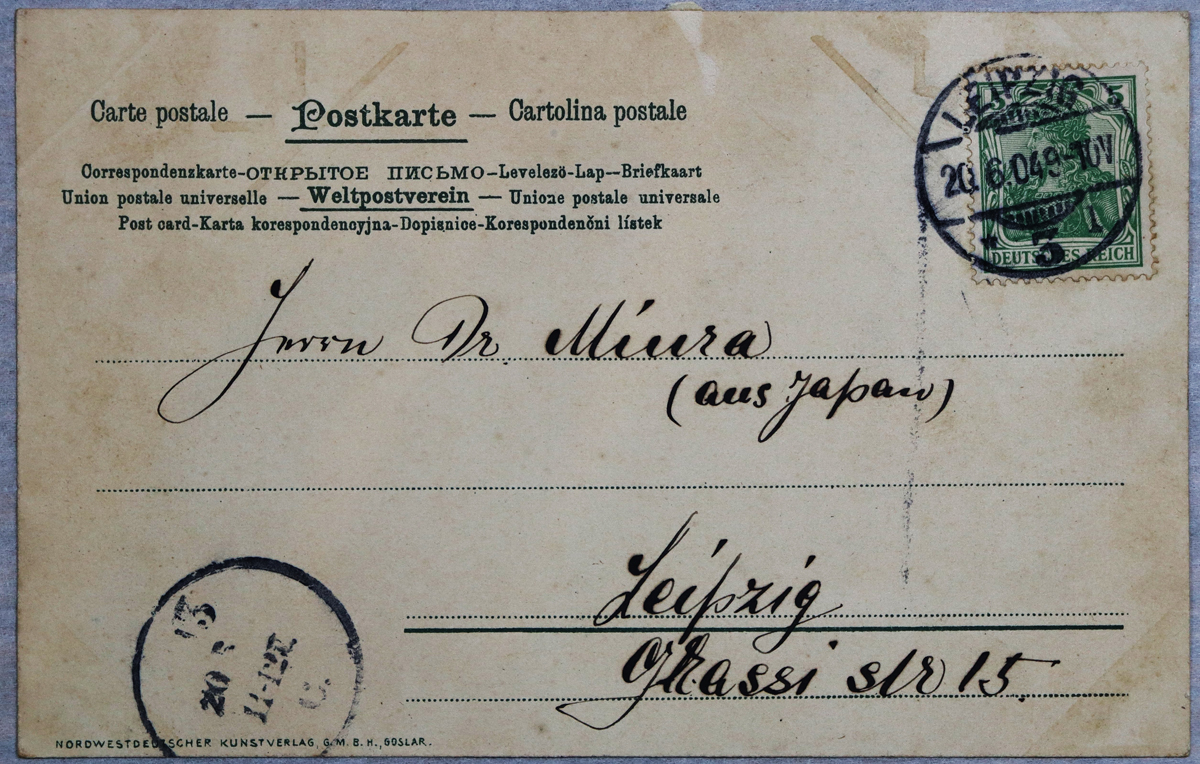 Carte postale — Postkarte — Cartolina postale
Correspondenzkarte-ОТКРЫТОЕ ПИСЬМО-Levelező-Lap--Briefkaart
Union postale universelle — Weltpostverein — Unione postale universale
Post card-Karta korespondencyjna-Dopisnice-Korespondenčni lístek
LEIPZIG
5
20.6.04 9-10V
* 3 1
DEUTSCHES REICH
Herrn Dr. Miura
(aus Japan)
Leipzig
Grassi str 15.
20
11-12V.
NORDWESTDEUTSCHER KUNSTVERLAG, G.M.B.H., GOSLAR.